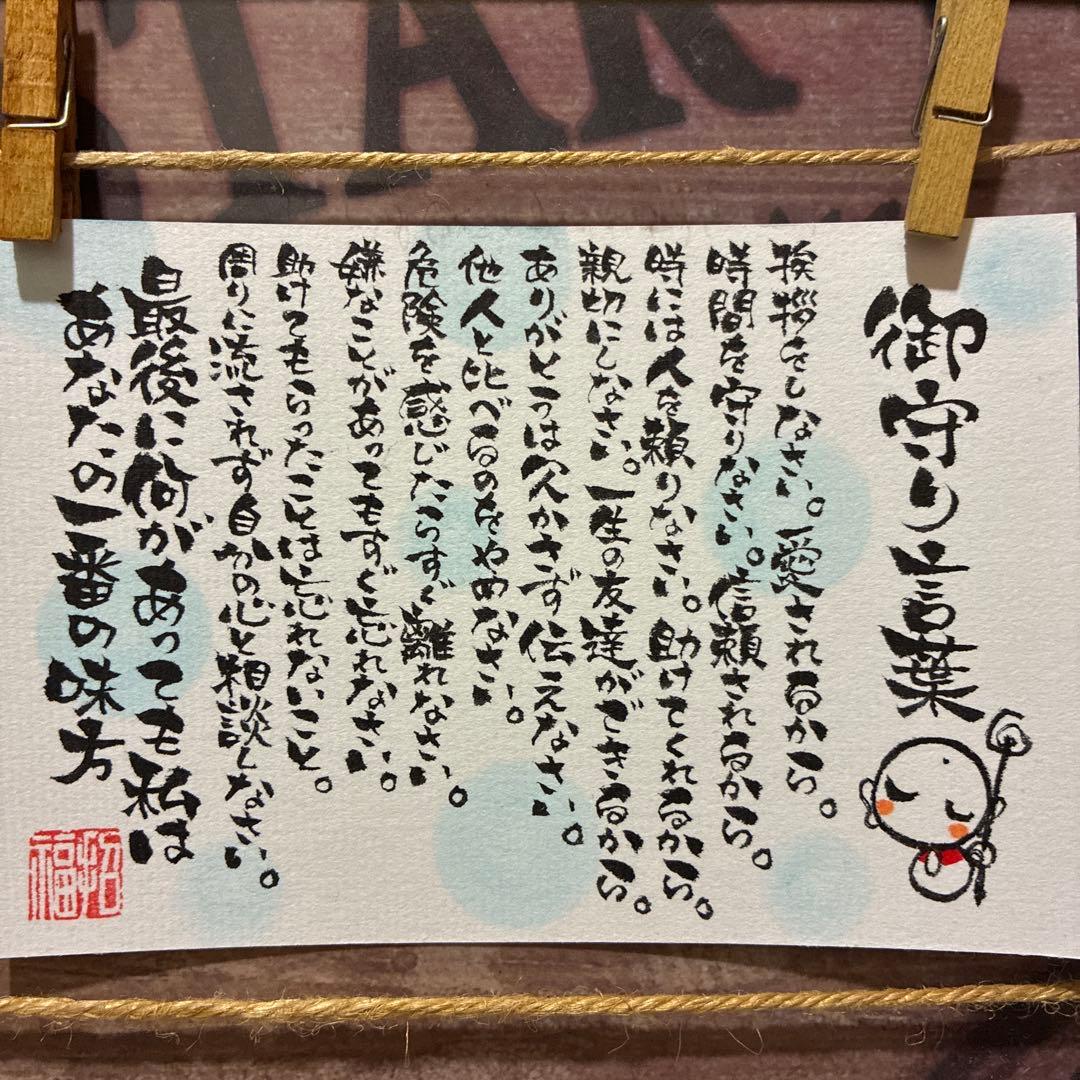 御守り言葉
挨拶をしなさい。愛されるから。
時間を守りなさい。信頼されるから。
時には人を頼りなさい。助けてくれるから。
親切にしなさい。一生の友達ができるから。
ありがとうは欠かさず伝えなさい。
他人と比べるのをやめなさい。
危険を感じたらすぐ離れなさい。
嫌なことがあってもすぐ忘れなさい。
助けてもらったことは忘れないこと。
周りに流されず自分の心と相談しなさい。
最後に何があっても私は
あなたの一番の味方